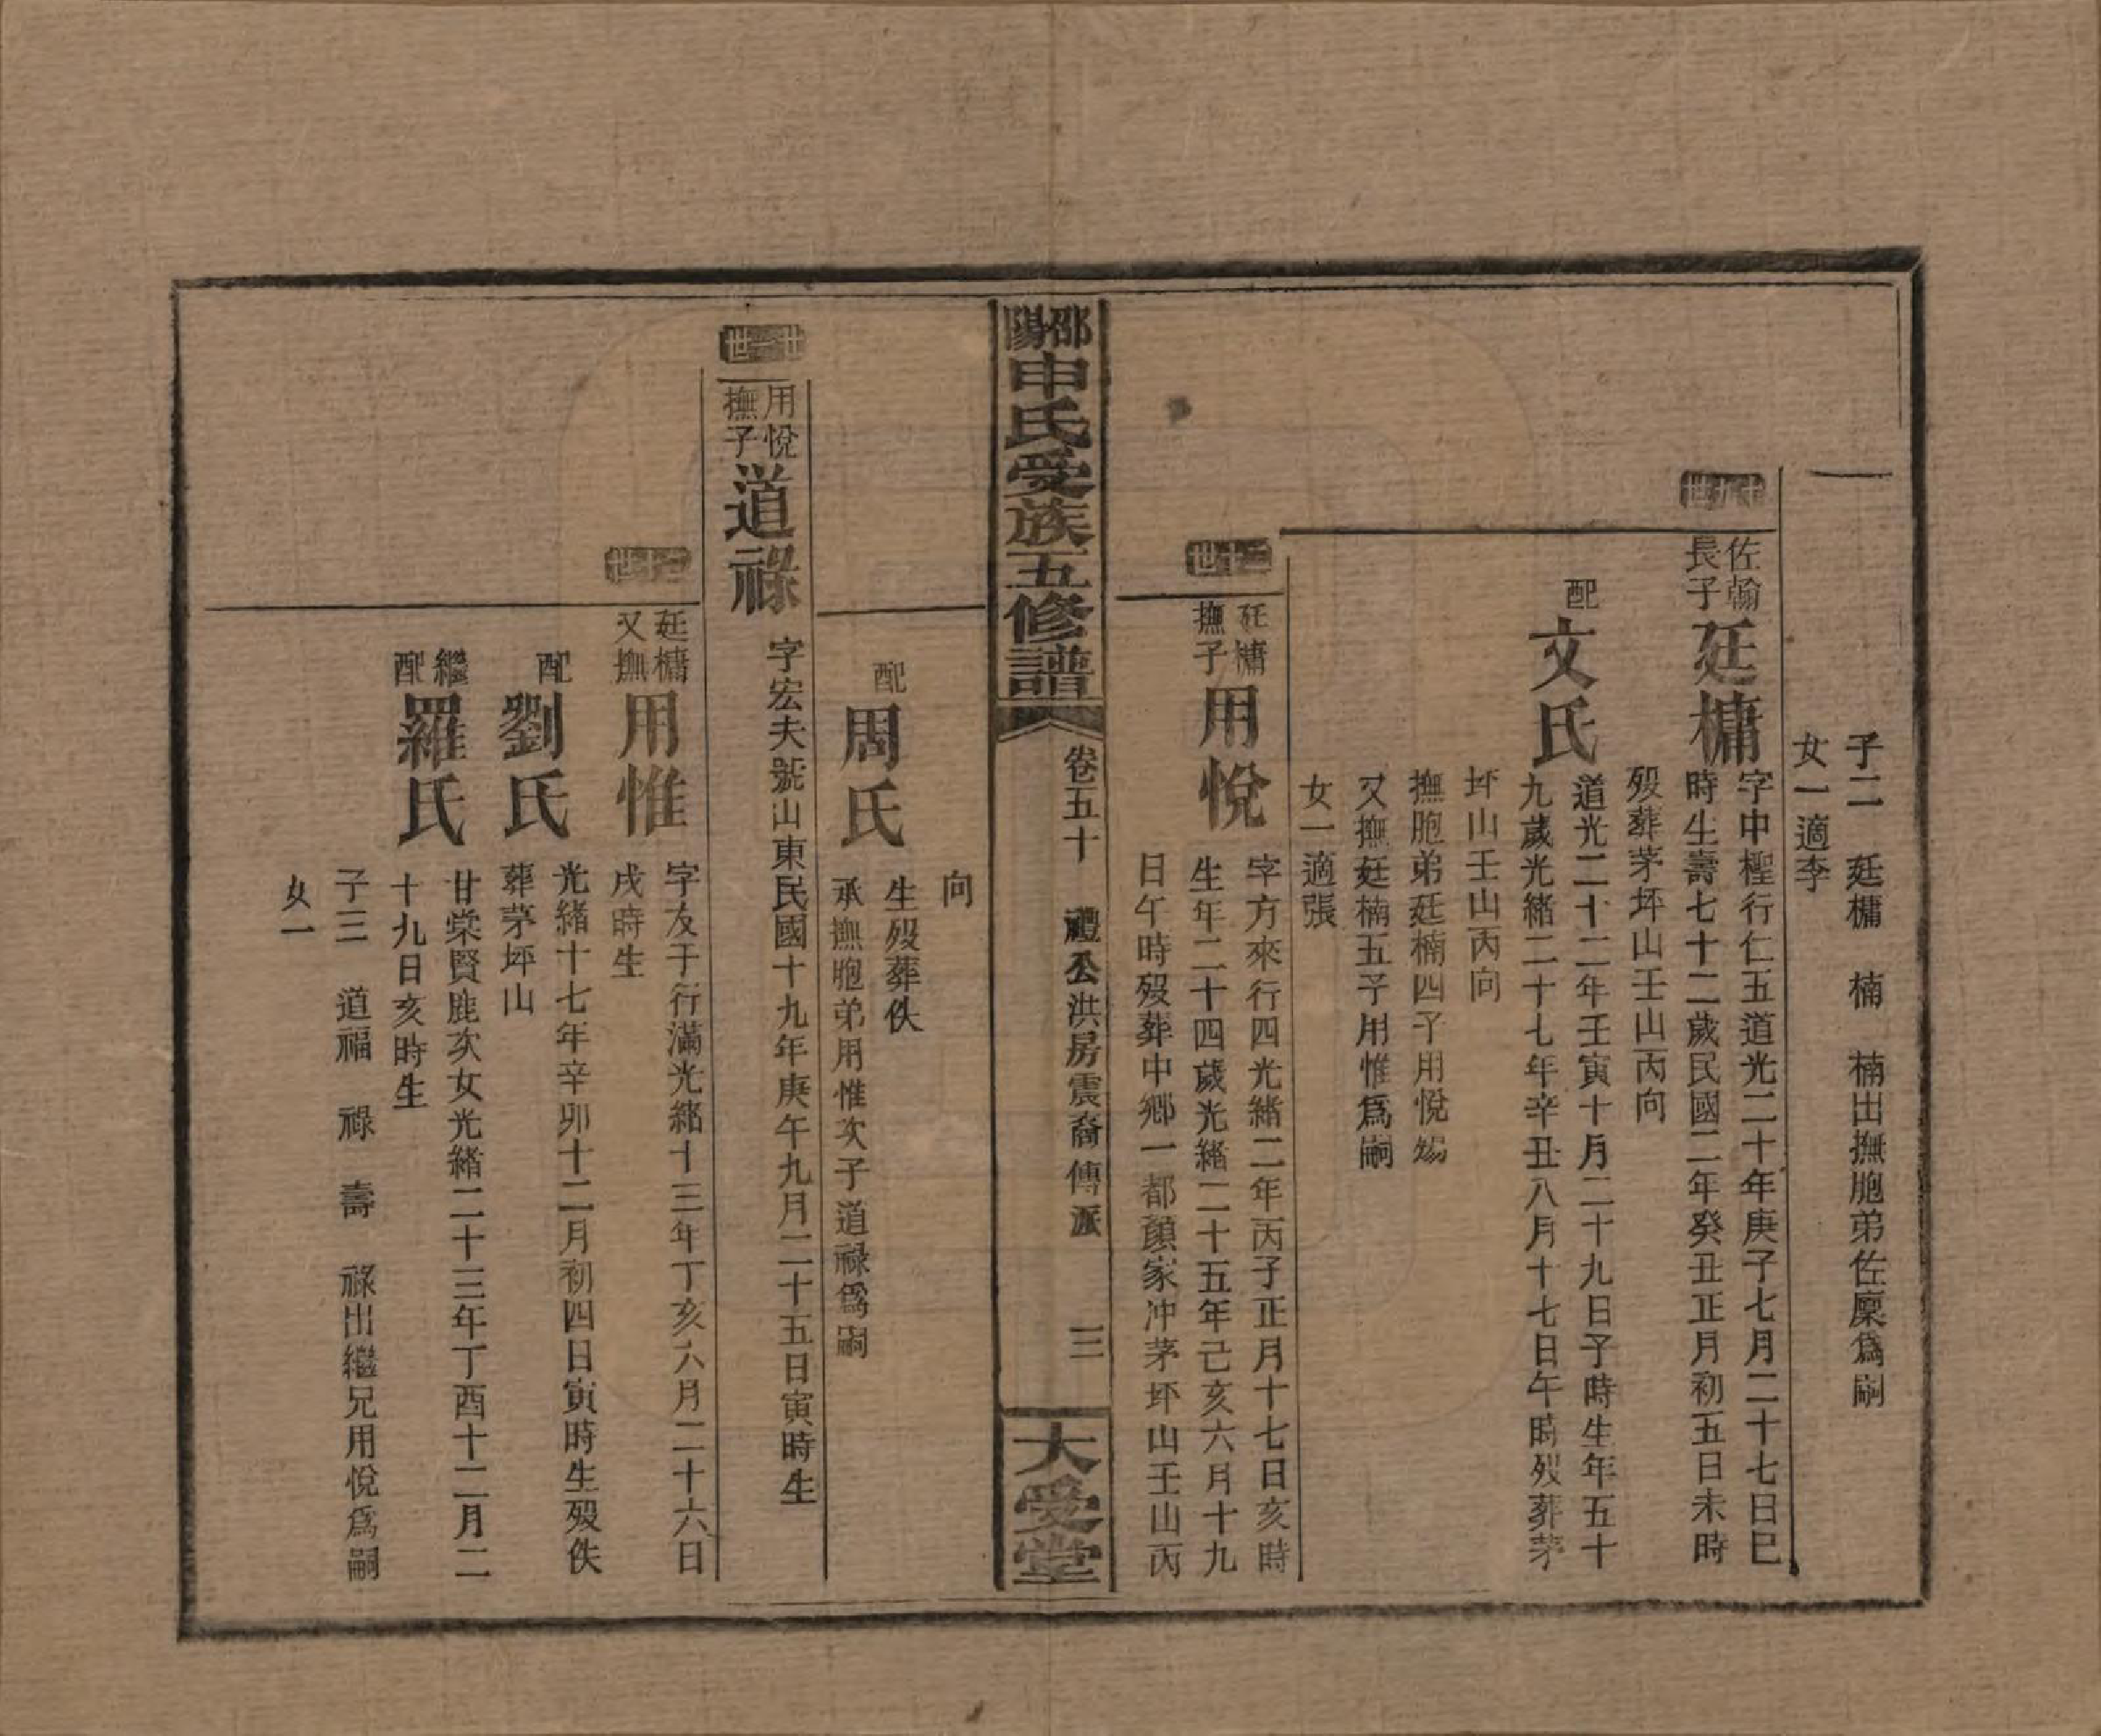 子二 廷槦 楠 楠出撫胞弟佐廩爲嗣
女一適李
十九世
佐翰長子
廷槦
字中檉行仁五道光二十年庚子七月二十七日巳
時生壽七十二歲民國二年癸丑正月初五日未時
歿葬茅坪山壬山丙向
配
文氏
道光二十二年壬寅十月二十九日子時生年五十
九歲光緒二十七年辛丑八月十七日午時歿葬茅
坪山壬山丙向
撫胞弟廷楠四子用悅殤
又撫廷楠五子用惟爲嗣
女一適張
二十世
廷槦撫子
用悅
字方來行四光緒二年丙子正月十七日亥時
生年二十四歲光緒二十五年己亥六月十九
日午時歿葬中鄉一都顏家冲茅坪山壬山丙
邵陽申氏受族五修譜
卷五十 禮公洪房震裔傳派 三
大受堂
向
配
周氏
生歿葬佚
承撫胞弟用惟次子道祿爲嗣
廿一世
用悅撫子
道祿
字宏夫號山東民國十九年庚午九月二十五日寅時生
二十世
廷槦又撫
用惟
字友于行滿光緒十三年丁亥六月二十六日
戌時生
配
劉氏
光緒十七年辛卯十二月初四日寅時生歿佚
葬茅坪山
繼配
羅氏
甘棠賢鹿次女光緒二十三年丁酉十二月二
十九日亥時生
子三 道福 祿 壽 祿出繼兄用悅爲嗣
女一